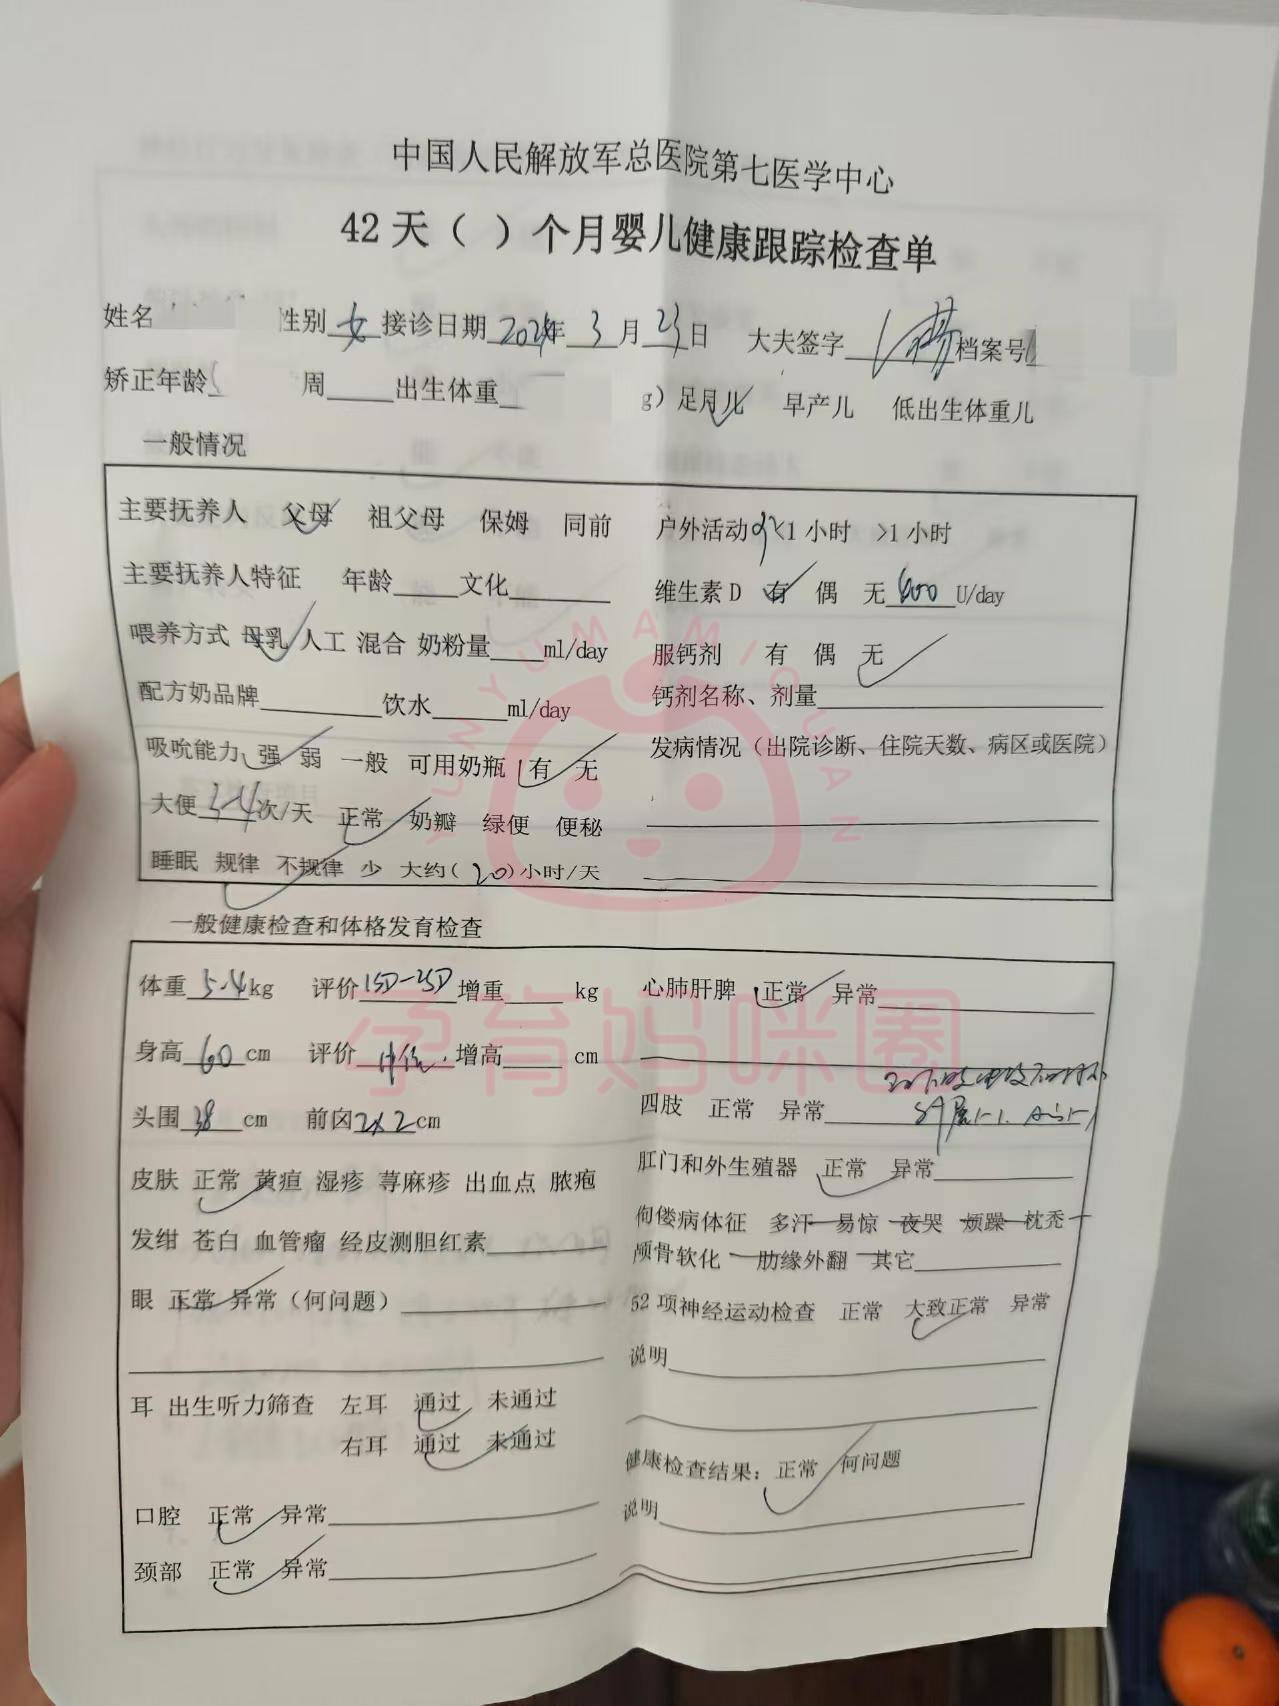 中国人民解放军总医院第七医学中心
42天（ ）个月婴儿健康跟踪检查单
姓名 性别 女 接诊日期 2024年 3 月 23 日 大夫签字 档案号
矫正年龄 周 出生体重 g）足月儿 早产儿 低出生体重儿
一般情况
主要抚养人 父母 祖父母 保姆 同前
主要抚养人特征 年龄 文化
喂养方式 母乳 人工 混合 奶粉量 ml/day
配方奶品牌 饮水 ml/day
吸吮能力 强 弱 一般 可用奶瓶 有 无
大便 3-4 次/天 正常 奶瓣 绿便 便秘
睡眠 规律 不规律 少 大约（20）小时/天
户外活动 <1小时 >1小时
维生素D 有 偶 无 U/day
服钙剂 有 偶 无
钙剂名称、剂量
发病情况（出院诊断、住院天数、病区或医院）
YUNYUMAMIQUAN
一般健康检查和体格发育检查
体重 5.4 kg 评价 1SD-2SD 增重 kg
身高 60 cm 评价 增高 cm
头围 38 cm 前囟 2x2 cm
皮肤 正常 黄疸 湿疹 荨麻疹 出血点 脓疱
发绀 苍白 血管瘤 经皮测胆红素
眼 正常 异常（何问题）
耳 出生听力筛查 左耳 通过 未通过
右耳 通过 未通过
口腔 正常 异常
颈部 正常 异常
心肺肝脾 正常 异常
四肢 正常 异常
肛门和外生殖器 正常 异常
佝偻病体征 多汗 易惊 夜哭 烦躁 枕秃
颅骨软化 肋缘外翻 其它
52项神经运动检查 正常 大致正常 异常
说明
健康检查结果：正常 何问题
说明
孕育妈咪圈